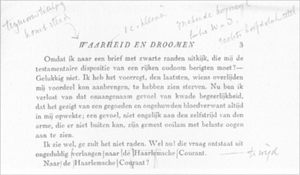 WAARHEID EN DROOMEN
3
Omdat ik naar een brief met zwarte randen uitkijk, die mij de
testamentaire dispositie van een rijken oudoom berigten moet? —
Gelukkig niet. Ik heb het voorregt, den laatsten, wiens overlijden
mij voordeel kon aanbrengen, te hebben zien sterven. Nu ben ik
verlost van dat onaangenaam gevoel van kwade begeerlijkheid,
dat het gezigt van een gegoeden en ongehuwden bloedverwant altijd
in mij opwekte; een gevoel, niet engelijk aan den zelfstrijd van den
arme, die er niet buiten kan, zijn gemest ooilam met behoste oogen
aan te zien.
Ik zie wel, ge zult het niet raden. Wel nu! die vraag ontstaat uit
ongeduldig verlangen naar de Haarlemsche Courant.
Naar de Haarlemsche Courant!